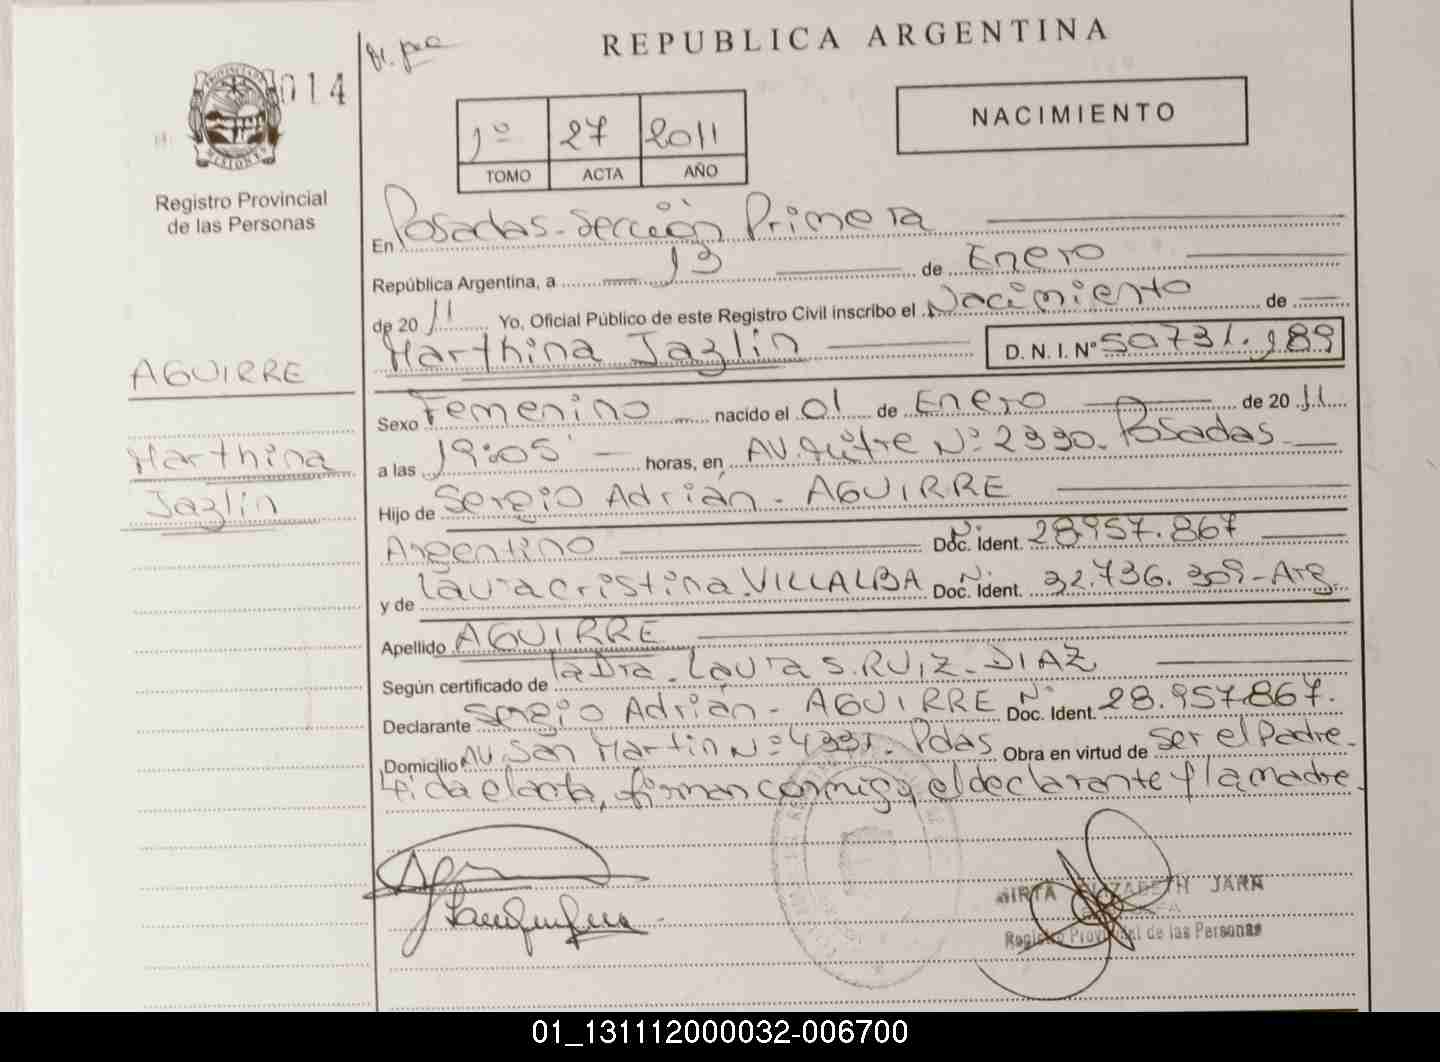 REPUBLICA ARGENTINA
014
NACIMIENTO
1º 27 2011
TOMO ACTA AÑO
Registro Provincial
de las Personas
En Posadas - Sección Primera
República Argentina, a 13 de Enero
de 2011 Yo, Oficial Público de este Registro Civil inscribo el Nacimiento de
Marthina Jazlín D. N. I. Nº 50731.189
AGUIRRE
Marthina
Jazlín
Sexo Femenino nacido el 01 de Enero de 2011
a las 19:05 horas, en AV. Mitre Nº 2330. Posadas
Hijo de Sergio Adrián - AGUIRRE
Argentino Doc. Ident. Nº 28.957.867
y de Laura Cristina VILLALBA Doc. Ident. Nº 32.736.309 - Arg.
Apellido AGUIRRE
Según certificado de la Dra. Laura S. RUIZ - DIAZ
Declarante Sergio Adrián - AGUIRRE Doc. Ident. Nº 28.957.867.
Domicilio AV. San Martin Nº 4331. Pdas Obra en virtud de Ser el Padre.
Leida el acta, firman conmigo, el declarante y la madre.
MIRTA ELIZABETH JARA
Registro Provincial de las Personas
01_131112000032-006700